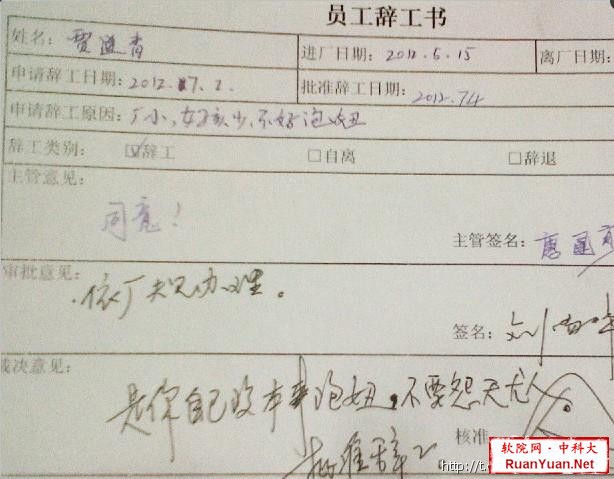 员工辞工书
姓名: 贾 青 进厂日期: 2012.5.15 离厂日期:
申请辞工日期: 2012. 7. 2. 批准辞工日期: 2012.7.4
申请辞工原因: 厂小,女孩少,不好泡妞
辞工类别: ☑辞工 □自离 □辞退
主管意见:
同意!
主管签名: 唐国
审批意见:
依厂规办理。
签名: 刘
裁决意见:
是你自己没本事泡妞,不要怨天尤人。
核准
批准辞工
http://t.
软院网·中科大
RuanYuan.Net